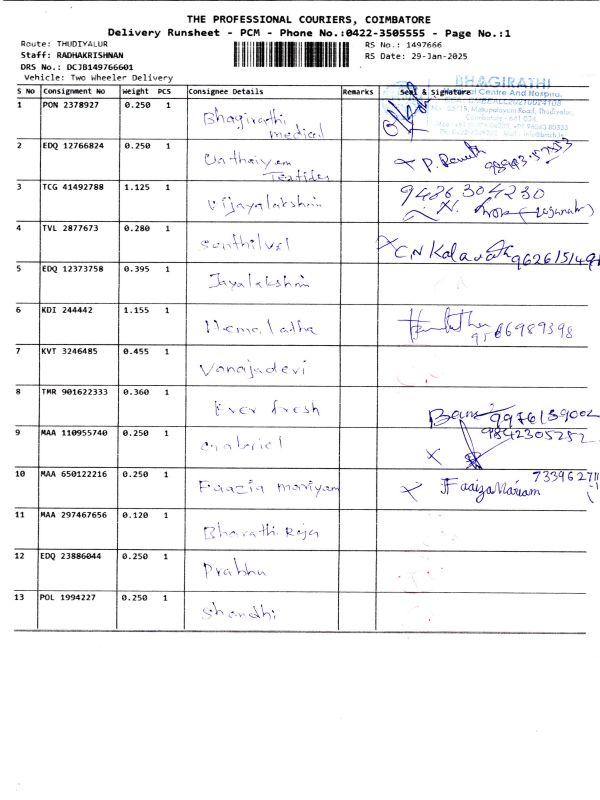 THE PROFESSIONAL COURIERS, COIMBATORE
Delivery Runsheet - PCM - Phone No.:0422-3505555 - Page No.:1
Route: THUDIYALUR
RS No.: 1497666
Staff: RADHAKRISHNAN
RS Date: 29-Jan-2025
DRS No.: DCJB149766601
Vehicle: Two Wheeler Delivery
S No Consignment No Weight PCS Consignee Details Remarks Seal & Signature
BHAGIRATHI
Centre And Hospital
Mettupalayam Road, Thudiyalur,
Coimbatore - 641 034.
1 PON 2378927 0.250 1 Bhagirathi medical
2 EDQ 12766824 0.250 1 Textiles
3 TCG 41492788 1.125 1 Vijayalakshmi 9486304230
4 TVL 2877673 0.280 1 Senthilvel C.N Kalavathi
5 EDQ 12373758 0.395 1 Jayalakshmi
6 KDI 244442 1.155 1 Hemaladha 9566989398
7 KVT 3246485 0.455 1 Vanajadevi
8 TMR 901622333 0.360 1 Ever fresh 9976139002
9 MAA 110955740 0.250 1 Gabriel 9842305252
10 MAA 650122216 0.250 1 Faazia mariyam Faaiza Mariam
11 MAA 297467656 0.120 1 Bharathi Raja
12 EDQ 23886044 0.250 1 Prabhu
13 POL 1994227 0.250 1 Shandhi